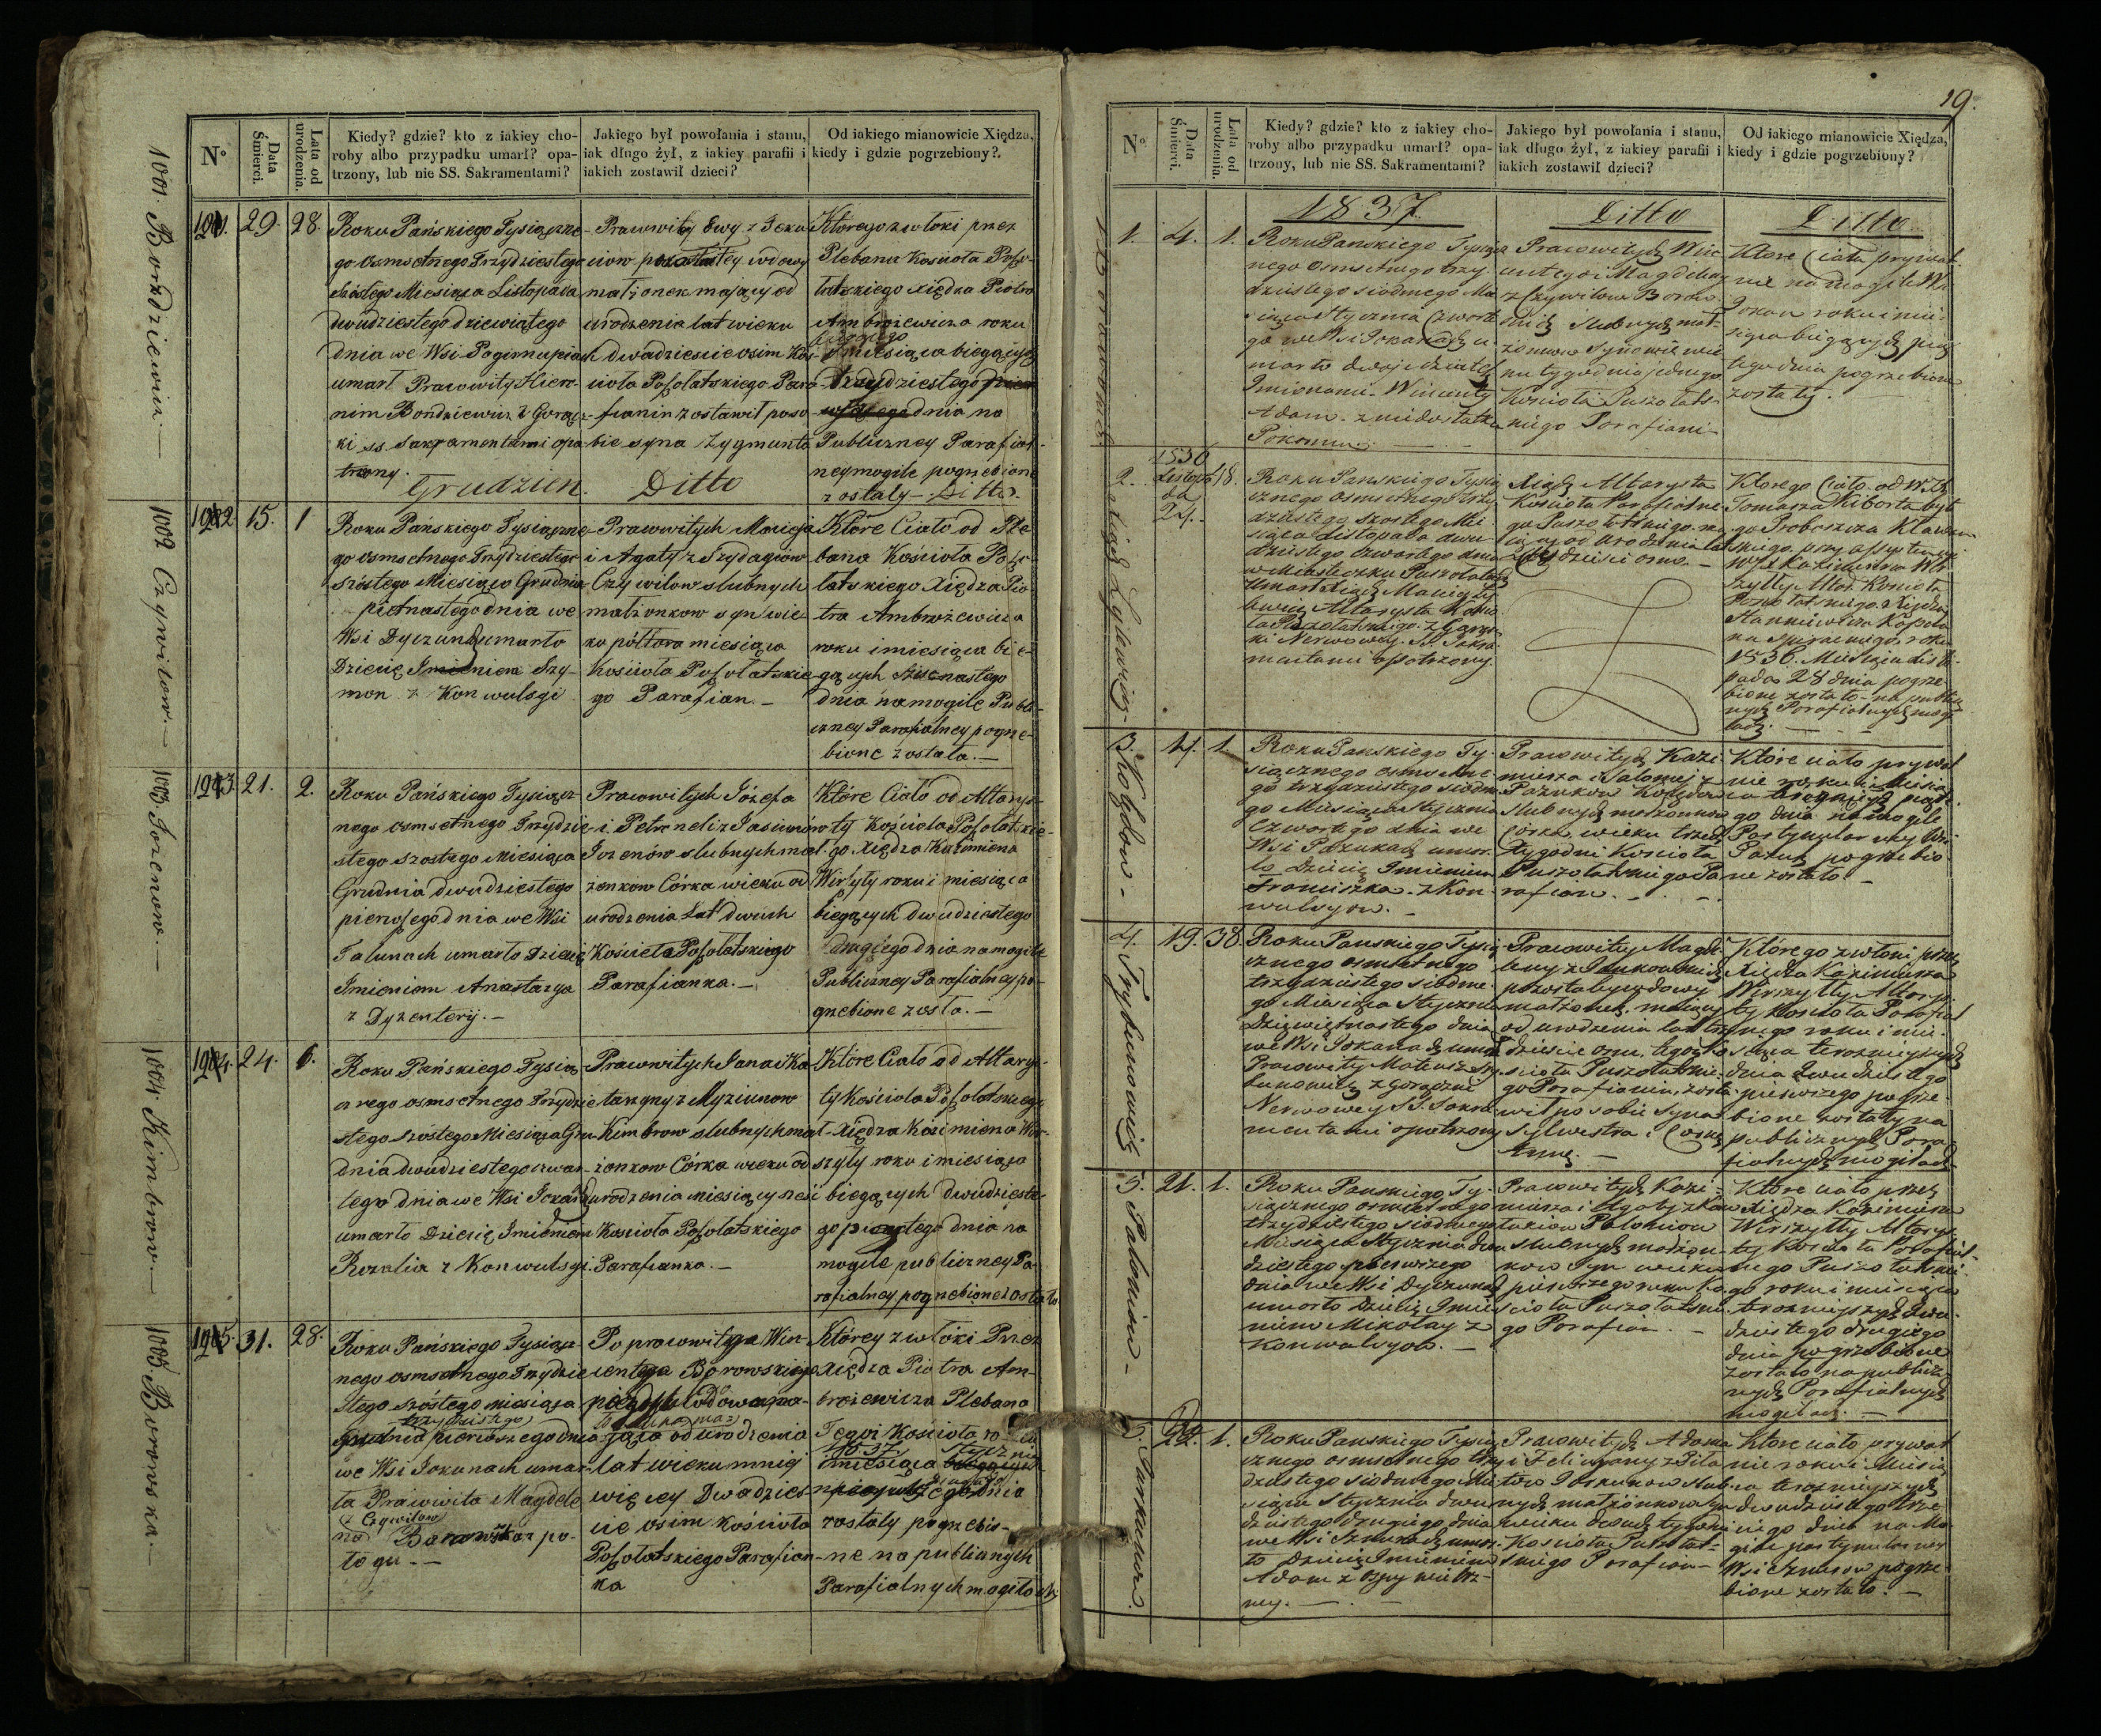 N°
Data Śmierci.
Lata od urodzenia.
Kiedy? gdzie? kto z iakiey cho-
roby albo przypadku umarł? opa-
trzony, lub nie SS. Sakramentami?
Jakiego był powołania i stanu,
iak długo żył, z iakiey parafii i
iakich zostawił dzieci?
Od iakiego mianowicie Xiędza,
kiedy i gdzie pogrzebiony?
1001. Bordziewicz.—
29. 28.
Roku Pańskiego Tysiączne-
go osmsetnego Trzydziestego
szóstego Miesiąca Listopada
dwudziestego dziewiątego
dnia we Wsi
umarł Pracowity Hiero-
nim Bordziewicz z Gorącz-
ki ss. Sakramentami opa-
trzony.
Pracowitey Ewy z
pozostałey wdowy
małżonek mający od
urodzenia lat wieku
dwadzieście osim Koś-
cioła Poszołatskiego Para-
fianin zostawił poso-
bie syna Zygmunta
Którego zwłoki przez
Plebana Kościoła Poszo-
łatskiego Xiędza Piotra
Ambrożewicza roku
bieżącego
miesiąca biegących
trzydziestego
dnia na
Publiczney Parafial-
ney mogile pogrzebione
zostały — Ditto.
Grudzien.
Ditto
1002 Czywilow.—
15. 1
Roku Pańskiego Tysiączne-
go osmsetnego Trzydziestego
szóstego Miesiąca Grudnia
piętnastego dnia we
Wsi Dyrzunach umarło
Dziecię Imieniem Szy-
mon z Konwulsyi
Pracowitych Macieja
i Agaty z Szydagiow
Czywilow slubnych
małżonkow syn wie-
ku półtora miesiąca
Kościoła Poszołatskie-
go Parafian.—
Które Ciało od Ple-
bana Kościoła Poszo-
łatskiego Xiędza Pio-
tra Ambrożewicza
roku i miesiąca bie-
gących szesnastego
dnia na mogile Publi-
czney Parafialney pogrze-
bione zostało.—
1003 Jozenow.—
21. 2.
Roku Pańskiego Tysiącz-
nego osmsetnego Trzydzie-
stego szostego Miesiąca
Grudnia dwudziestego
pierwszego dnia we Wsi
Talunach umarło Dziecię
Imieniem Anastazya
z Dyzenteryi.—
Pracowitych Józefa
i Petroneli z Jasiunów
Jozenów slubnych mał-
żonkow Córka wieku od
urodzenia Lat dwuch
Kościoła Poszołatskiego
Parafianka.—
Które Ciało od Ałtarys-
ty Kościoła Poszołatskie-
go Xiędza Kazimierza
Wirszyły roku i miesiąca
biegących dwudziestego
drugiego dnia na mogile
Publiczney Parafialney po-
grzebione zosta.—
1004 Kimbrow.—
24. 6.
Roku Pańskiego Tysią-
cznego osmsetnego Trzydzie-
stego szóstego Miesiąca Gru-
dnia dwudziestego czwar-
tego dnia we Wsi Jokanach
umarło Dziecię Imieniem
Rozalia z Konwulsyi.
Pracowitych Jana i Ka-
tarzyny z Myziunow
Kimbrow slubnych mał-
żonkow Córka wieku od
urodzenia miesięcy sześć
Kościoła Poszołatskiego
Parafianka.—
Które Ciało od Ałtarys-
ty Kościoła Poszołatskiego
Xiędza Kazimierza Wir-
szyły roku i miesiąca
biegących dwudzieste-
go piątego dnia na
mogile publiczney Pa-
rafialney pogrzebione zostało
1005 Borowska.—
31. 28.
Roku Pańskiego Tysiącz-
nego osmsetnego Trzydzie-
stego szóstego miesiąca
trzydziestego
Grudnia pierwszego dnia
we Wsi Jokunach umar-
ła Pracowita Magdale-
z Czywilow
na Borowska z po-
łogu.—
Po pracowitym Win-
centym Borowskim
pozostała
od urodzenia
lat wieku mniej
więcey Dwadzieś-
cie osim Kościoła
Poszołatskiego Parafian-
ka
Którey zwłoki Przez
Xiędza Piotra Am-
brożewicza Plebana
Tegoż Kościoła roku
1837 stycznia
miesiąca
dnia
zostały pogrzebio-
ne na publicznych
Parafialnych mogiłach
19.
N°
Data Śmierci.
Lata od urodzenia.
Kiedy? gdzie? kto z iakiey cho-
roby albo przypadku umarł? opa-
trzony, lub nie SS. Sakramentami?
Jakiego był powołania i stanu,
iak długo żył, z iakiey parafii i
iakich zostawił dzieci?
Od iakiego mianowicie Xiędza,
kiedy i gdzie pogrzebiony?
1837
Ditto
Ditto
1. 4. 1.
Roku Panskiego Tysącz-
nego osmsetnego trzy-
dziestego siodmego Mie-
siąca Stycznia Czwarte-
go we Wsi Jokanach u-
marło dwoje dziatek
Imionami Wincenty
Adam z niedostatku
Pokarmu.
Pracowitych Win-
centego i Magdaleny
z Czywilow Borow-
skich slubnych mał-
żonkow Synowie wie-
ku tygodnia jednego
Kościoła Puszołats-
kiego Parafiani
Ktore Ciała prywat-
nie na mogile Wsi
Jokan roku i mie-
siąca bieżących piąte-
tego dnia pogrzebione
zostały.
2. Xiądz Zylewicz
1836
Listopa-
da
24.
48.
Roku Panskiego Tysią-
cznego osmsetnego trzy-
dziestego szostego Mie-
siąca Listopada dwu-
dziestego czwartego dnia
w Miasteczku Puszołatach
umarł Xiądz Maciej Zy-
lewicz Ałtarysta Koscio-
ła Puszołatskiego z Gorącz-
ki Nerwowey SS. Sakra-
mentami opatrzony.
Xiądz Ałtarysta
Kościoła Parafialne-
go Puszołatskiego ma-
jący od urodzenia lat
czterdzieści osm.—
Ktorego Ciało od WJX
Tomasza Wiborta byt-
go Proboszcza
skiego przy assystencyi
WJX Kazimierza Wir-
szyłły Ałtar. Kościoła
Poszołatskiego i Xiędza
Stanniewicza Kapela-
na roku
1836. Miesiąca Listo-
pada 28 dnia pogrze-
bione zostało na publicz-
nych Parafialnych mogi-
łach.—
3. Kołzdow—
4. 1.
Roku Panskiego Ty-
siącznego osmsetne-
go trzydziestego siodme-
go Miesiąca Stycznia
Czwartego dnia we
Wsi Pazukach umar-
ło Dziecię Imieniem
Franciszka z Kon-
wulsyow.—
Pracowitych Kazi-
mierza i Salomei z
Pazukow
slubnych małżonkow
córka wieku trzech
tygodni Kościoła
Puszołatskiego Pa-
rafian.—
Ktore ciało prywat-
nie roku i Miesią-
ca piąte-
go dnia na mogile
Partykularney Wsi
Pazuk pogrzebio-
ne zostało—
4. Trybunowicz
19. 38.
Roku Panskiego Tysią-
cznego osmsetnego
trzydziestego siodme-
go Miesiąca Stycznia
Dziewiętnastego dnia
we Wsi Jokanach umarł
Pracowity Mateusz Try-
bunowicz z Gorączki
Nerwowey SS. Sakra-
mentami opatrzony
Pracowitey Magda-
leny z Jankowskich
pozostałey wdowy
małżonek mający
od urodzenia lat trzy-
dzieście osm, tegoż Ko-
ścioła Puszołatskie-
go Parafianin, zosta-
wił po sobie Syna
Sylwestra i Corkę
Annę.—
Ktorego zwłoki przez
Xiędza Kazimierza
Wirszyłły Ałtarys-
ty Kościoła Parafial-
nego roku i mie-
siąca teraźnieyszych
dnia dwudziestego
pierwszego pogrze-
bione zostały na
publicznych Para-
fialnych mogiłach
5. Pałoniow—
21. 1.
Roku Panskiego Ty-
siącznego osmsetnego
trzydziestego siodmego
Miesiąca Stycznia dwu-
dziestego pierwszego
dnia we Wsi Dyrzunach
umarło Dziecię Imie-
niem Mikołay z
Konwulsyow.—
Pracowitych Kazi-
mierza i Agaty z
Pałoniow
slubnych małżon-
kow Syn wieku
pierwszego roku Ko-
ścioła Puszołatskie-
go Parafian.—
Ktore ciało przez
Xiędza Kazimierza
Wirszyłły Ałtarys-
ty Kościoła Parafial-
nego Puszołatskie-
go roku i miesiąca
teraźnieyszych dwu-
dziestego drugiego
dnia pogrzebione
zostało na publicz-
nych Parafialnych
mogiłach.—
6. Jaskunow.
22. 1.
Roku Panskiego Tysią-
cznego osmsetnego trzy-
dziestego siodmego Mie-
siąca Stycznia dwu-
dziestego drugiego dnia
we Wsi Sznurach umar-
ło Dziecię Imieniem
Adam z
Pracowitych Adama
i Felicyanny z
Jaskunow slub-
nych małżonkow Syn
wieku dwuch tygodni
Kościoła Puszołat-
skiego Parafian—
Ktore ciało prywat-
nie roku i Miesią-
ca teraźnieyszych
dwudziestego trze-
ciego dnia na Mo-
gile partykularney
Wsi Sznurow pogrze-
bione zostało.—